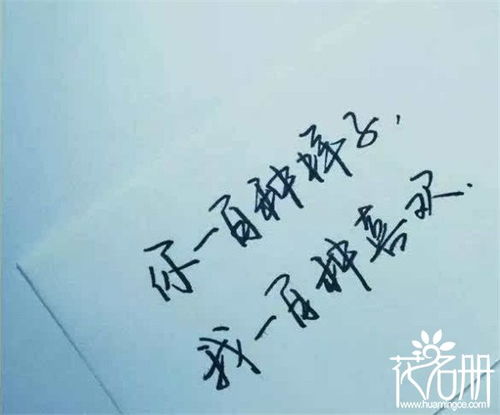 你一百种样子,
我一百种喜欢.
花名册
www.huamingce.com